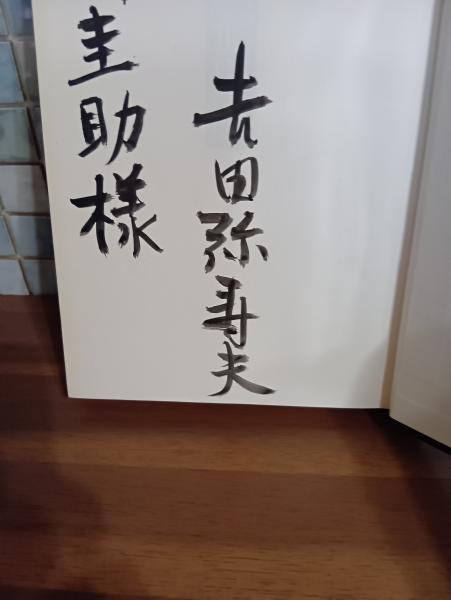 吉田弥寿夫
圭助様